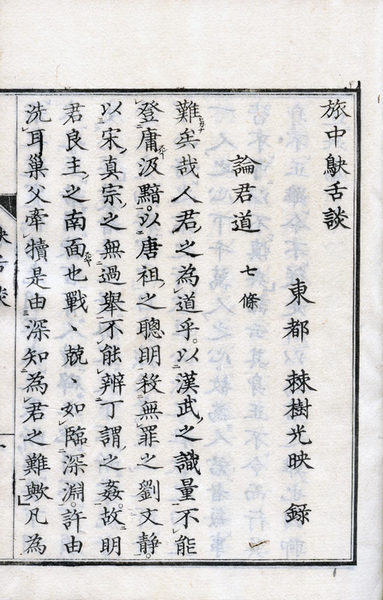 旅中鴃舌談
東都 棘樹光映 錄
論君道 七條
難矣哉人君之為道乎以漢武之識量不能
登庸汲黯以唐祖之聰明殺無罪之劉文靜
以宋真宗之無過舉不能辨丁謂之姦故明
君良主之南面也戰々兢々如臨深淵許由
洗耳巢父牽犢是由深知為君之難歟凡為